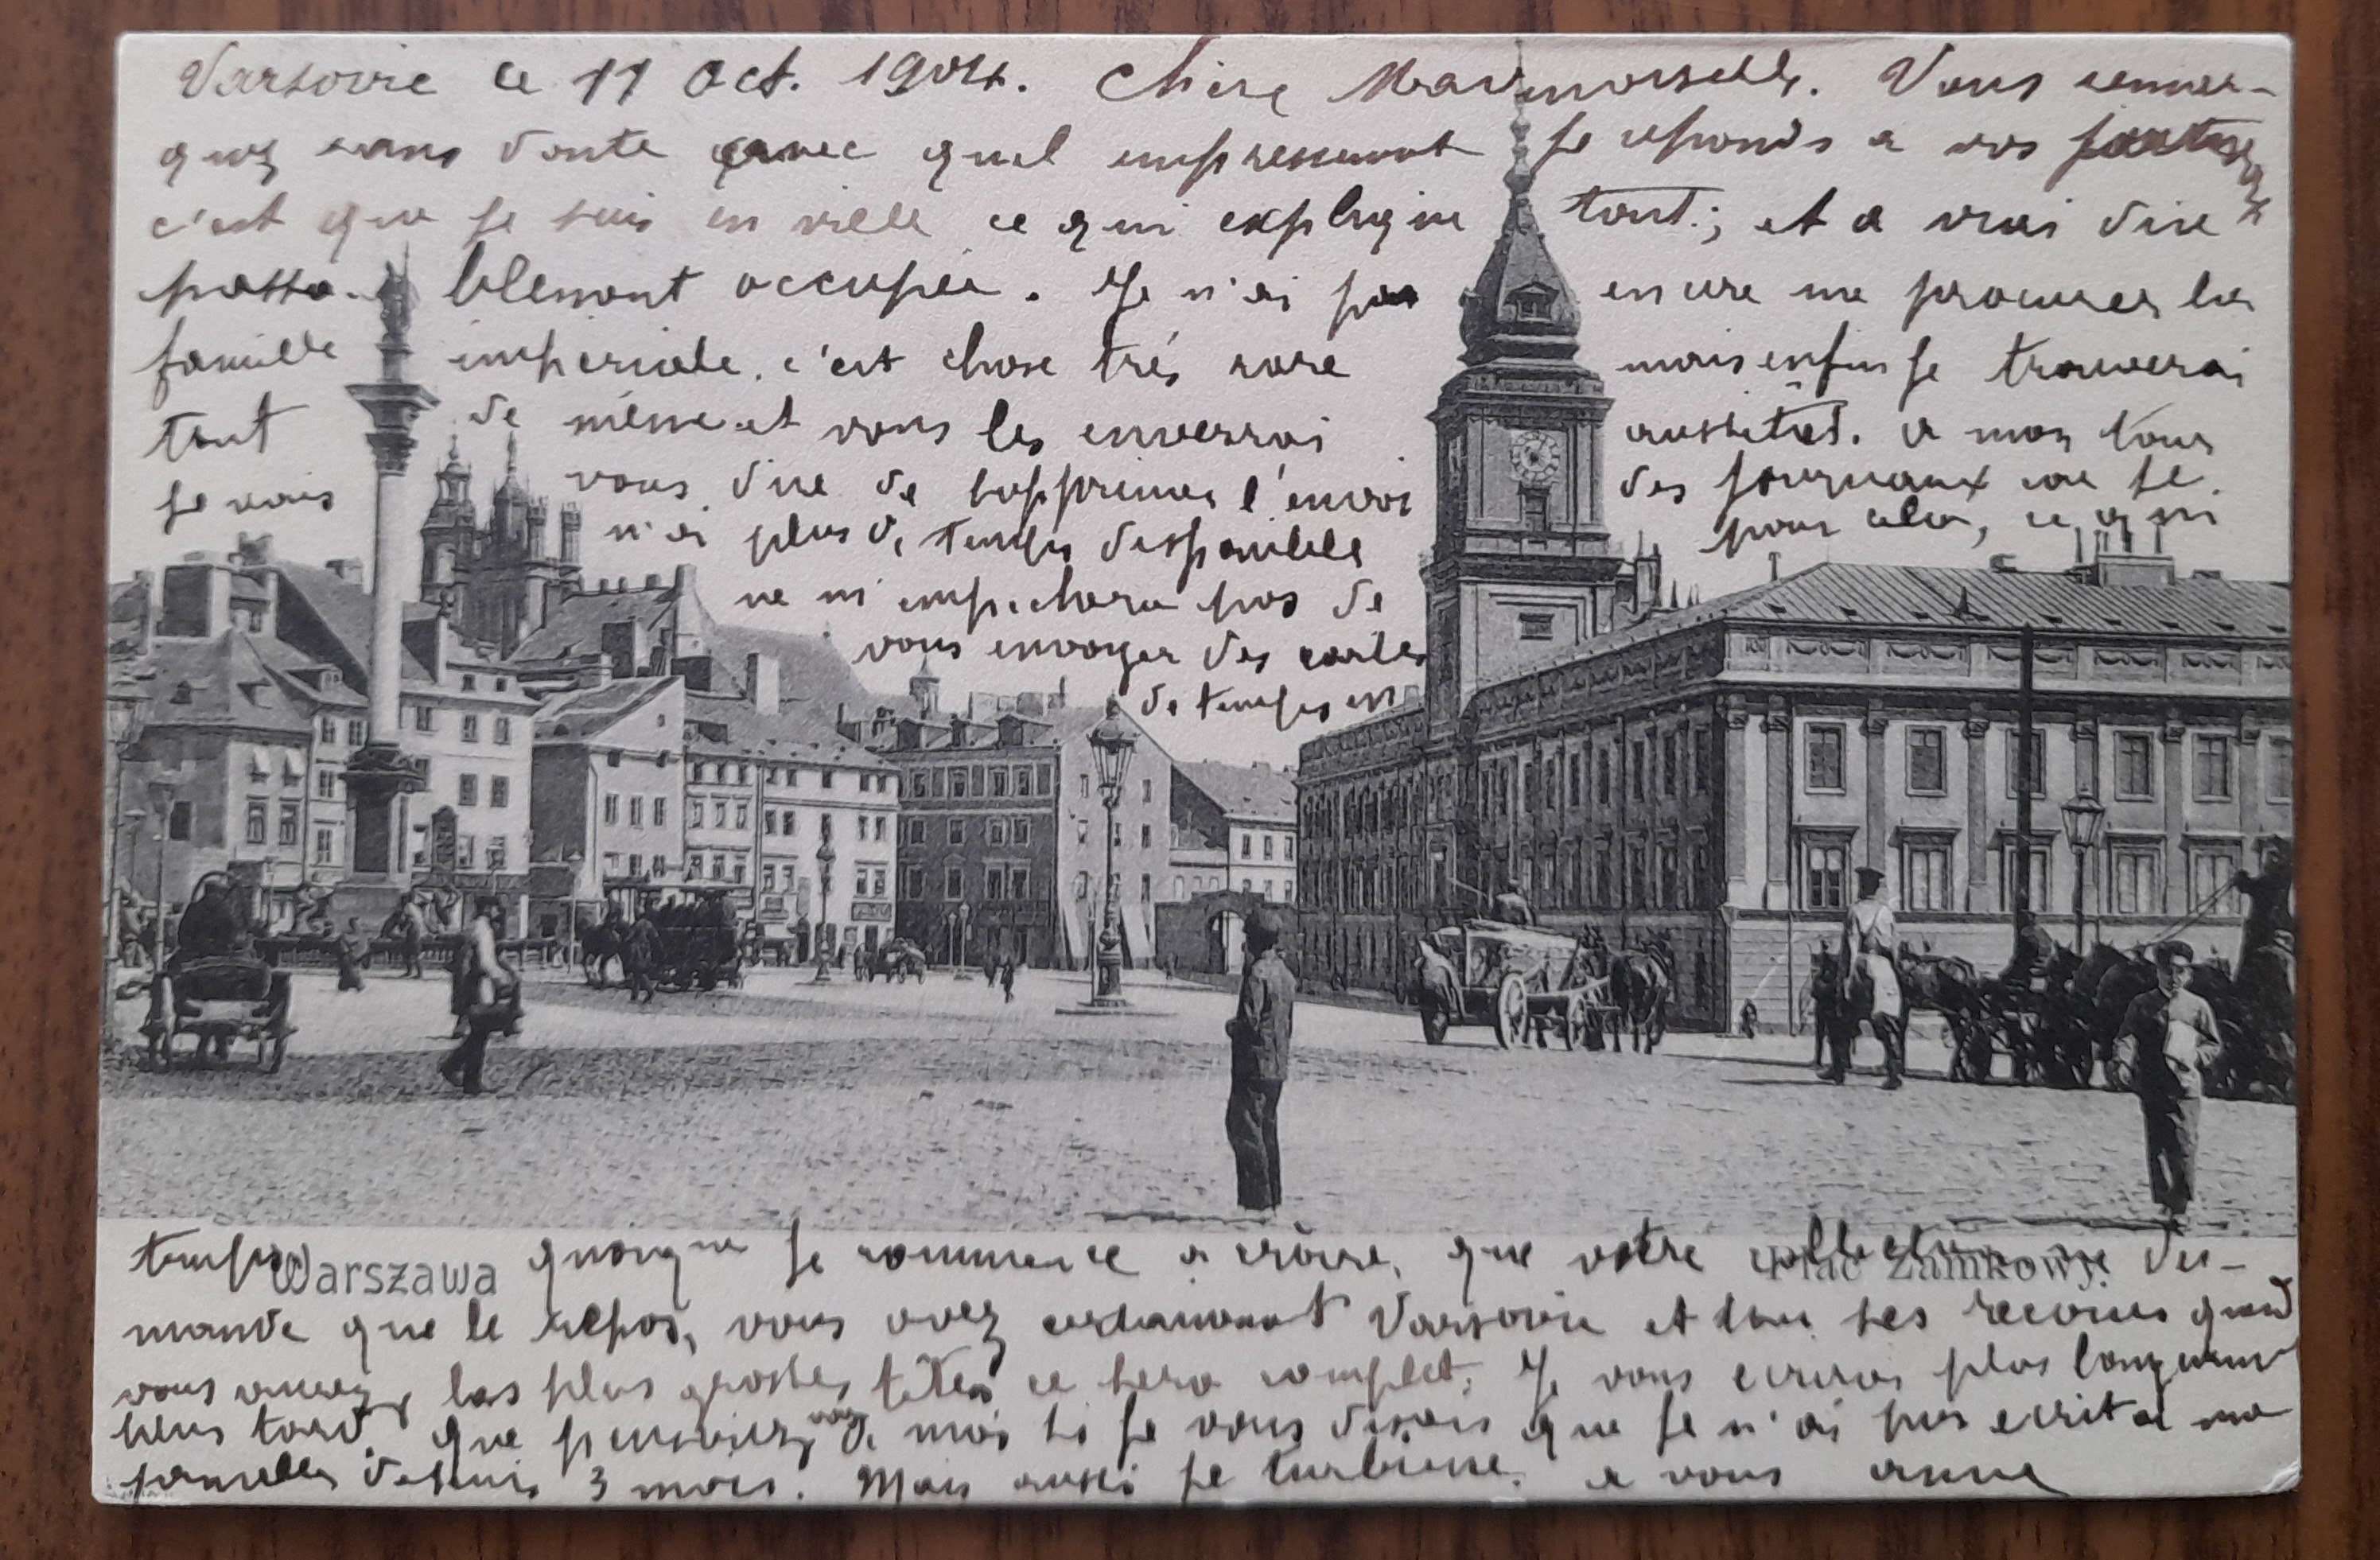 Varsovie ce 11 Oct. 1904. Chère Mademoiselle. Vous remar-
quez sans doute avec quel empressement je reponds a vos
c'est que je suis en ville ce qui explique tout; et a vrai dire
passa- blement occupée. Je n'ai pas encore me procurer les
famille imperiale. c'est chose très rare mais enfin je trouverai
tout de même et vous les enverrai aussitôt. a mon tour
je vais vous dire de supprimer l'envoi des journaux car je
n'ai plus de temps disponible pour cela, ce qui
ne m'empechera pas de
vous envoyer des cartes
de temps en
temps quoique je commence a croire, que votre collection ne de-
Warszawa Plac Zamkowy.
mande que le repos, vous avez certainement Varsovie et tous ses recoins quand
vous aurez les plus grosses têtes ce sera complet. Je vous ecrirai plus longuement
plus tard. que penseriez vous de moi si je vous disais que je n'ai pas ecrit a ma
famille depuis 3 mois. Mais aussi je turbine. a vous anna